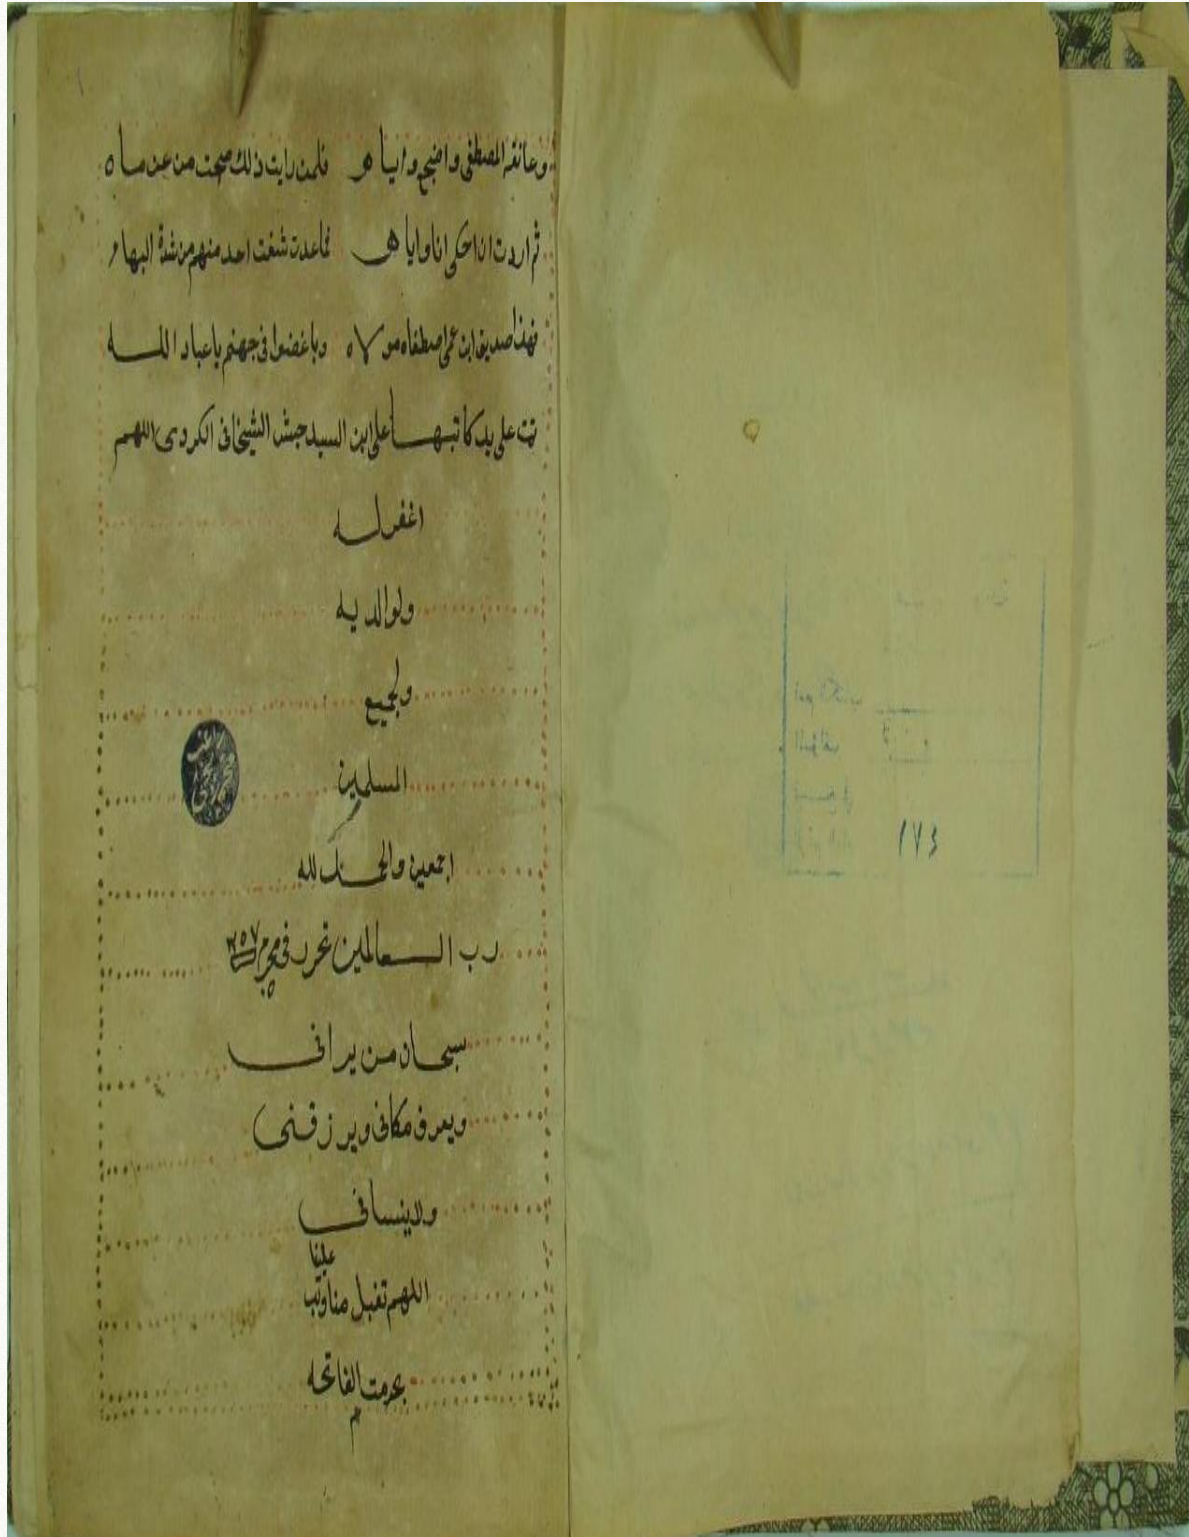 وعانقه المصطفى واضجع واياهو فلمن رايت ذلك صحت من عزماه
ثم اردت ان احكى انا واياهى فما عدت شفت احد منهم من شدة البهاء
فهذا صديق ابن عمى اصطفاه مولاه وباغضوا فى جهنم ياعباد اللـه
تمت على يد كاتبهـا على ابن السيد الشيخانى الكردى اللهم
اغفر لـه
ولوالديه
ولجميع
المسلمين
اجمعين والحمد لله
رب العالمين تحرر فى محرم
سبحان من يرانى
ويعرف مكانى ويرزقنى
ولا ينسانى
اللهم تقبل منا وتب علينا
بحرمت الفاتحه
م
١٧٤